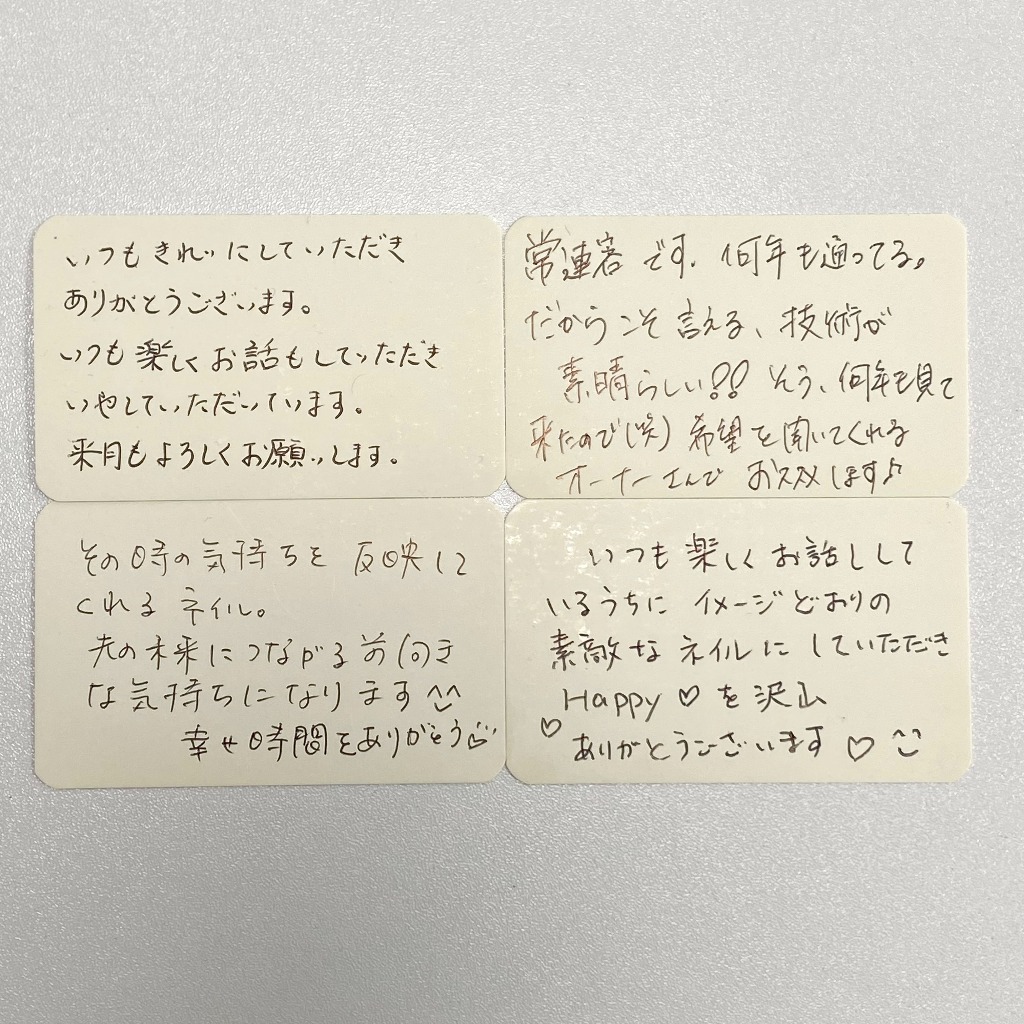 いつもきれいにしていただき
ありがとうございます。
いつも楽しくお話もしていただき
いやしていただいています。
来月もよろしくお願いします。
常連客です。何年も通ってる。
だからこそ言える、技術が
素晴らしい!! そう、何年も見て
来たので(笑) 希望を聞いてくれる
オーナーさんで おススメします♪
その時の気持ちを 反映して
くれる ネイル。
先の未来につながる前向き
な気持ちになります^^
幸せ時間をありがとう
いつも楽しくお話しして
いるうちに イメージどおりの
素敵な ネイルに していただき
Happy ♡ を沢山
♡ ありがとうございます ♡ ^^